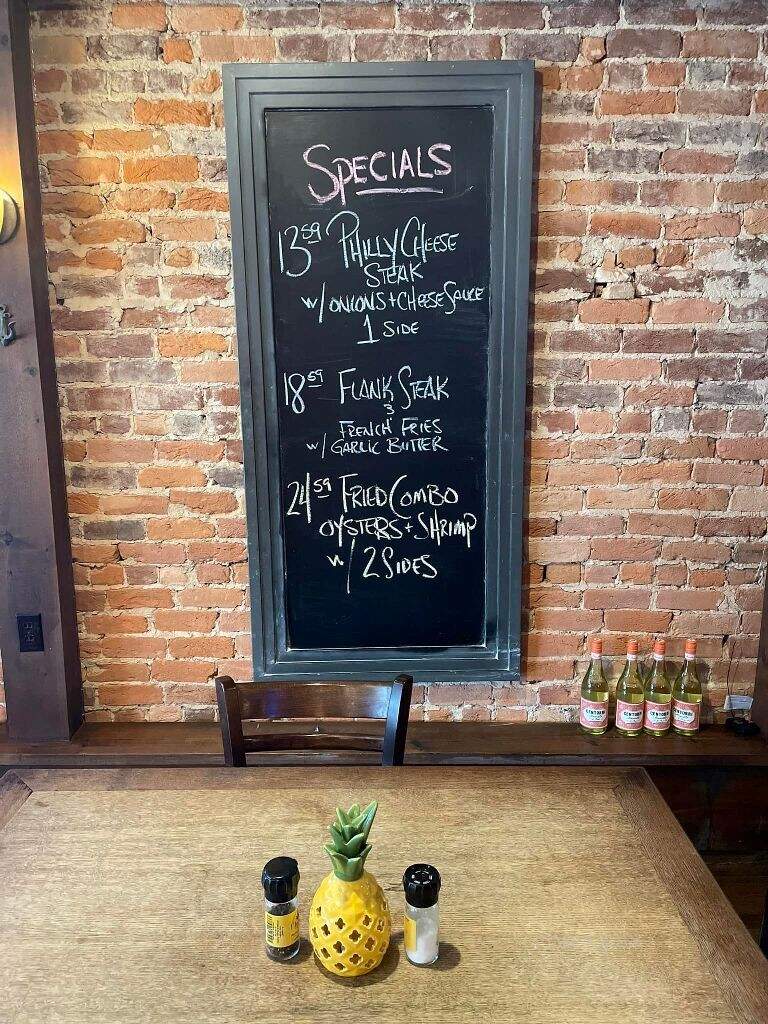 SPECIALS
13.59 PHILLY CHEESE
STEAK
w/ ONIONS + CHEESE SAUCE
1 SIDE
18.59 FLANK STEAK
&
FRENCH FRIES
w/ GARLIC BUTTER
24.59 FRIED COMBO
OYSTERS + SHRIMP
w/ 2 SIDES